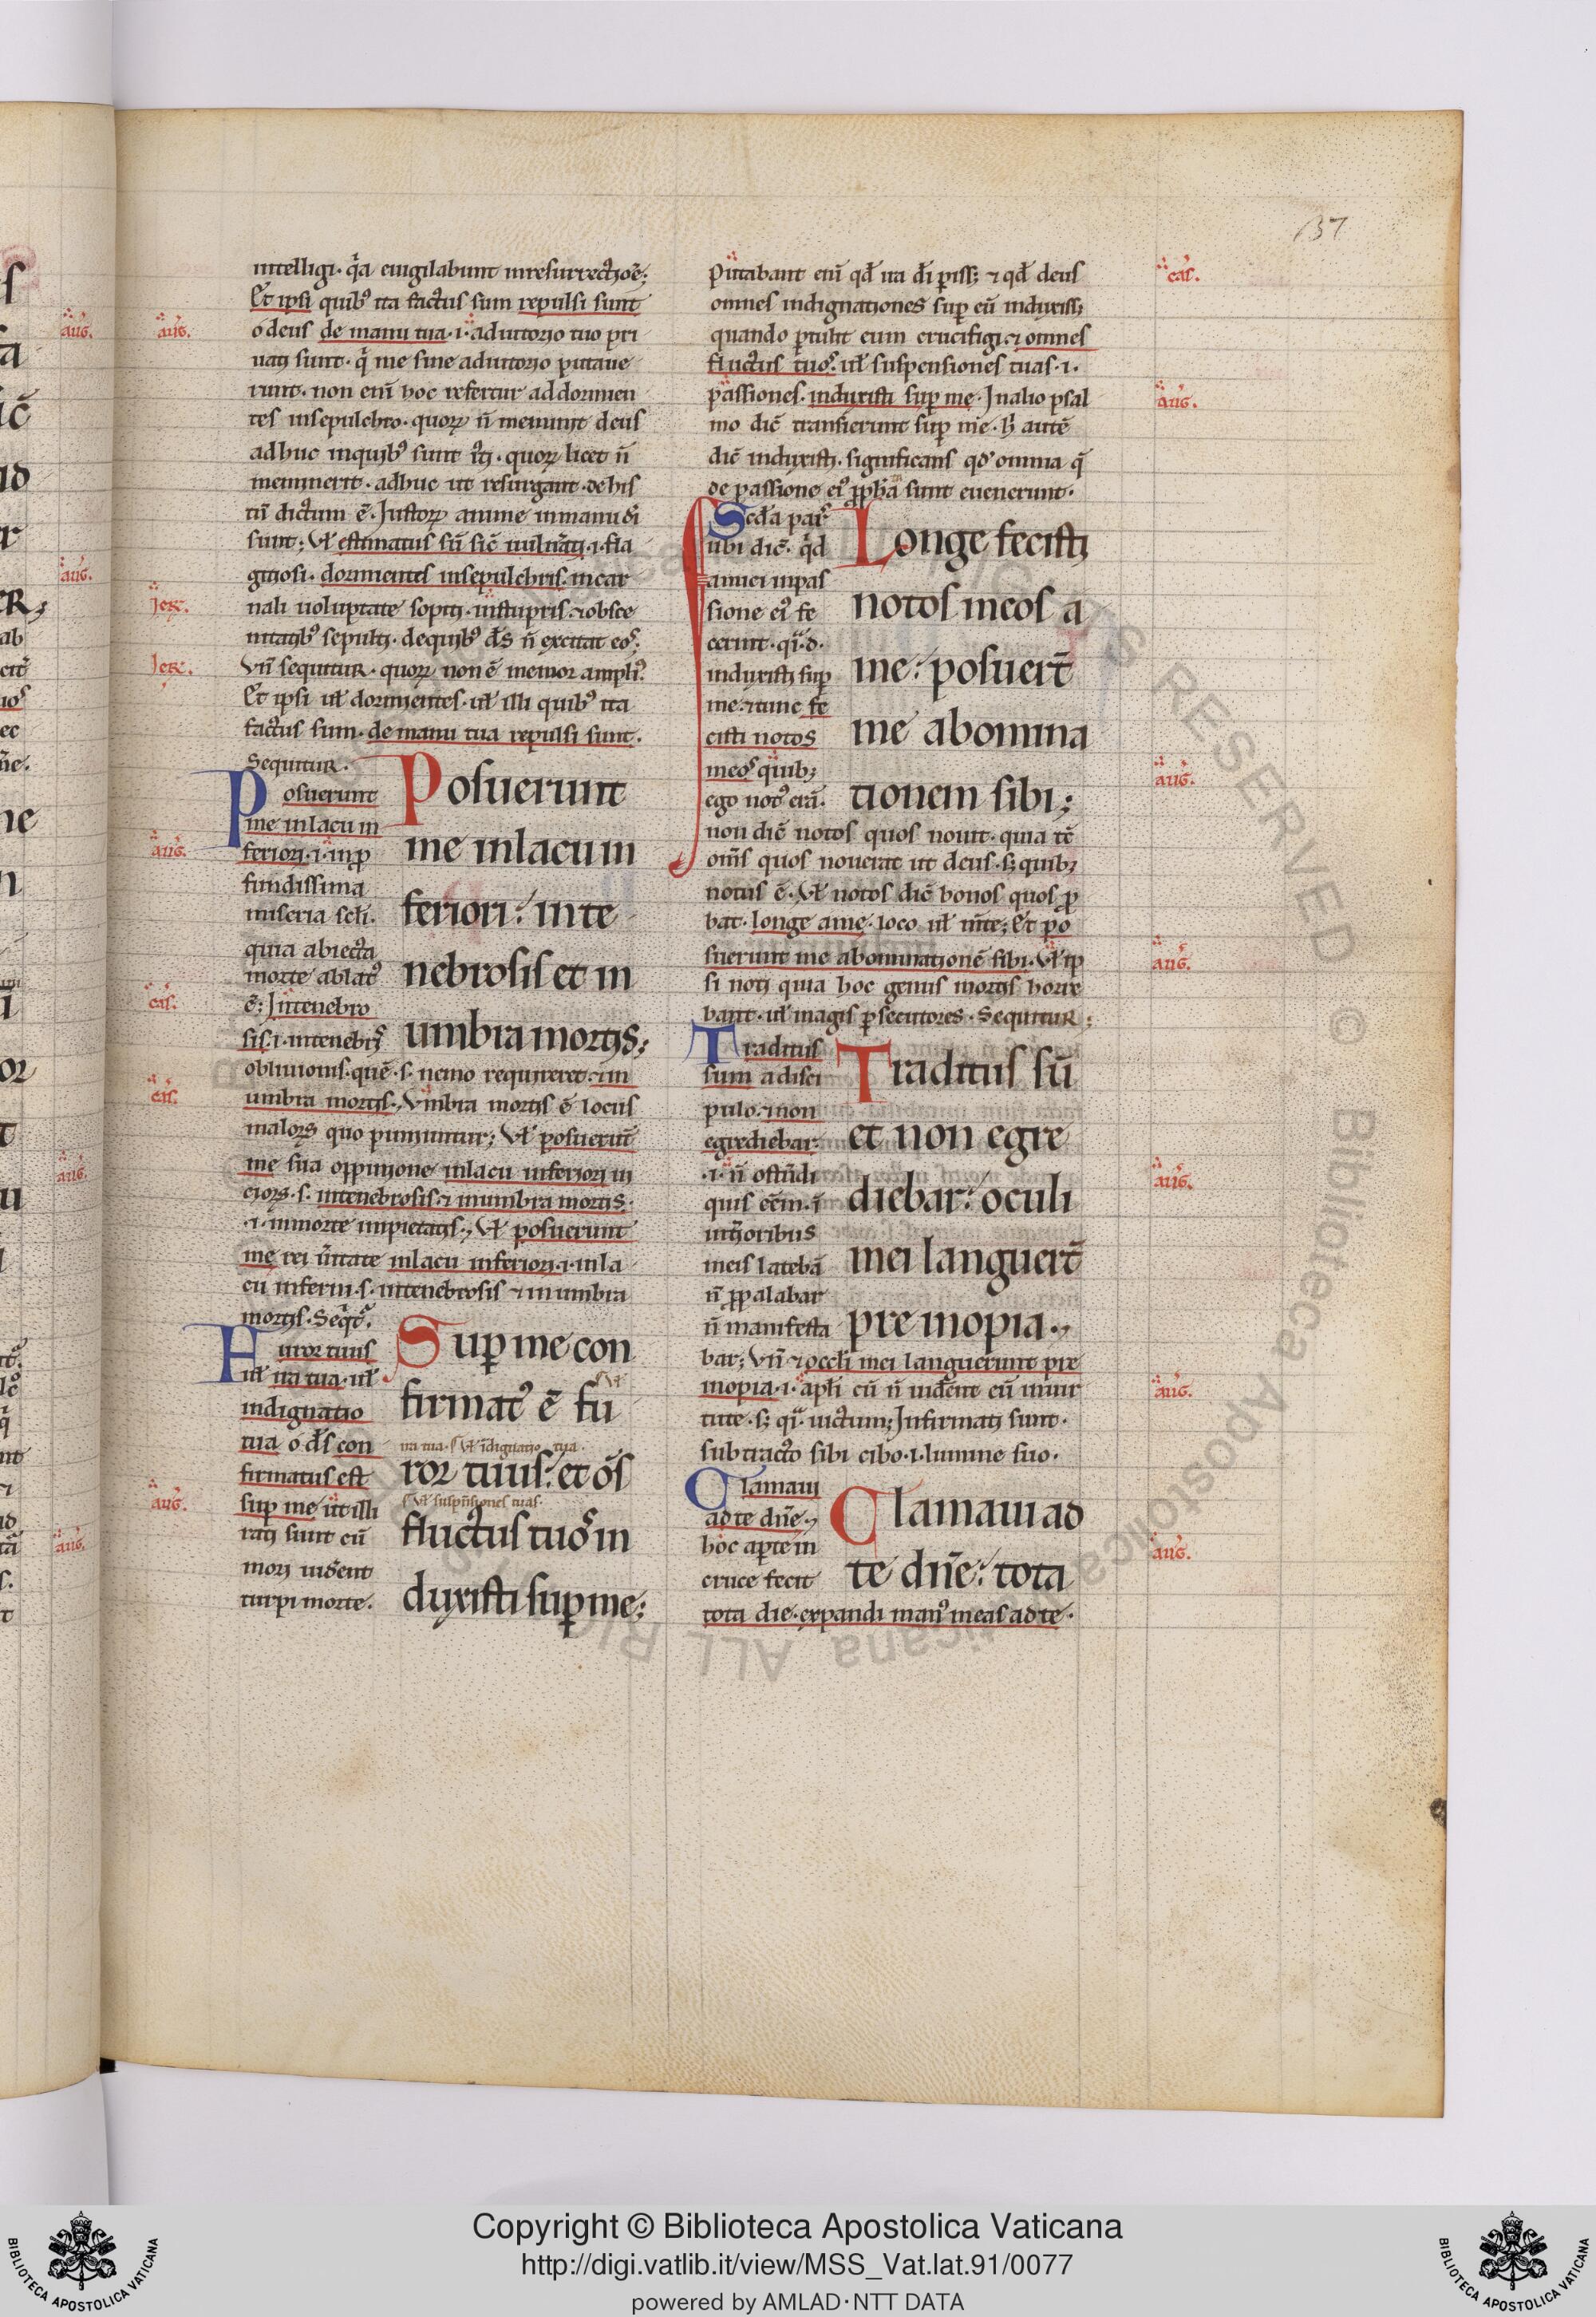 137
intelligi. qͣa euigilabunt in resurrectioē;
Et ipsi quibꝰ ita factus sum repulsi sunt
o deus de manu tua .i. adiutorio tuo pri
uati sunt. qͥ me sine adiutorio putaue
runt. non eni̅ hoc refertur ad dormien
tes in sepulchro. quoꝝ n̅ meminit deus
adhuc in quibꝰ sunt
meminerit. adhuc ut resurgant. de his
tn̅ dictum ē. Iustoꝝ anime in manu di̅
sunt; Vl̓ estimatus su̅ sic̅ uuln̅ati .i. fla
gitiosi. dormientes in sepulchris. in car
nali uoluptate sopiti. in stupris ⁊ obsce
nitatibꝰ sepulti. de quibꝰ d̅s n̅ excitat eos;
Vn̅ sequitur. quoꝝ non ē memor ampliꝰ.
Et ipsi ul̓ dormientes. ul̓ illi quibꝰ ita
factus sum. de manu tua repulsi sunt.
Sequitur.
Posuerunt
me in lacu in
feriori .i. in ꝓ
fundissima
miseria scil̓.
quia abiecta
morte ablatꝰ
ē: In tenebro
sis .i. in tenebris
Posuerunt
me in lacu in
feriori: in te
nebrosis et in
umbra mortis;
obliuionis. que̅ .s. nemo requireret ⁊ in
umbra mortis; Vmbra mortis ē locus
maloꝝ quo puniuntur; Vl̓ posueru̅t
me sua oppinione in lacu inferiori in
.s. in tenebrosis ⁊ in umbra mortis.
.i. in morte impietatis; Vl̓ posuerunt
me rei u̅itate in lacu inferiori .i. in la
cu inferni .s. in tenebrosis ⁊ in umbra
mortis. Seqͥtͬ.
Furor tuus
ul̓ ira tua. ul̓
indignatio
tua o d̅s con
firmatus est
sup̲ me ut illi
rati sunt cu̅
mori uident
turpi morte.
Sup̲ me con
firmatꝰ ē fu
ira tua. s. Vl̓ i̅dignatio tua.
ror tuus: et o̅s
s. Vl̓ susp̅nsiones tuas.
fluctus tuos in
duxisti sup̲ me;
Putabant eni̅ qd̓ ira di̅ p̲iss; ⁊ qd̓ deus
omnes indignationes sup̲ eu̅ induxiss;
quando p̲tulit eum crucifigi ⁊ omnes
fluctus tuos. ul̓ suspensiones tuas .i.
passiones. induxisti sup̲ me. In alio psal
mo dic̅ transierunt sup̲ me. h̓ aute̅
dic̅ induxisti. significans qd̓ omnia q̅
de passione eiꝰ ꝓph̅a sunt euenerunt.
Sed̅a pars
ubi dic̅. qͥd
amici in pas
sione eiꝰ fe
cerunt. qͣi. d.
induxisti sup̲
me. ⁊ tunc fe
cisti notos
meos quibꝫ
ego notꝰ era̅.
Longe fecisti
notos meos a
me: posuer̅t
me abomina
tionem sibi;
non dic̅ notos quos nouit. quia te̅
om̅s quos nouerat ut deus. sꝫ quibꝫ
notus ē. Vl̓ notos dic̅ bonos quos ꝓ
bat. longe a me. loco ul̓ m̅te; Et po
suerunt me abominatione̅ sibi. Vl̓ ip
si noti quia hoc genus mortis horre
bant. ul̓ magis p̲secutores. Sequitur;
Traditus
sum a disci
pulo. ⁊ non
egrediebar.
.i. n̅ oste̅di
quis ee̅m. i̅
int̓ioribus
meis lateba̅
n̅ ꝓpalabar
n̅ manifesta
Traditus su̅
et non egre
diebar: oculi
mei languer̅t
pre inopia;
bar; Vn̅ ⁊ occl̓i mei languerunt pre
inopia .i. apl̓i cu̅ n̅ uident eu̅ in uir
tute. sꝫ qͣi uictum; Infirmati sunt.
subtracto sibi cibo .i. lumine suo.
Clamaui
ad te dn̅e;
hoc ap̲te in
cruce fecit
Clamaui ad
te dn̅e: tota
tota die. expandi manꝰ meas ad te.
aug.
aug.
aug.
Ier.
Ier.
aug.
cas.
cas.
aug.
aug.
aug.
cas.
aug.
aug.
aug.
aug.
aug.
aug.
Copyright © Biblioteca Apostolica Vaticana
http://digi.vatlib.it/view/MSS_Vat.lat.91/0077
powered by AMLAD·NTT DATA
BIBLIOTECA APOSTOLICA VATICANA
BIBLIOTECA APOSTOLICA VATICANA